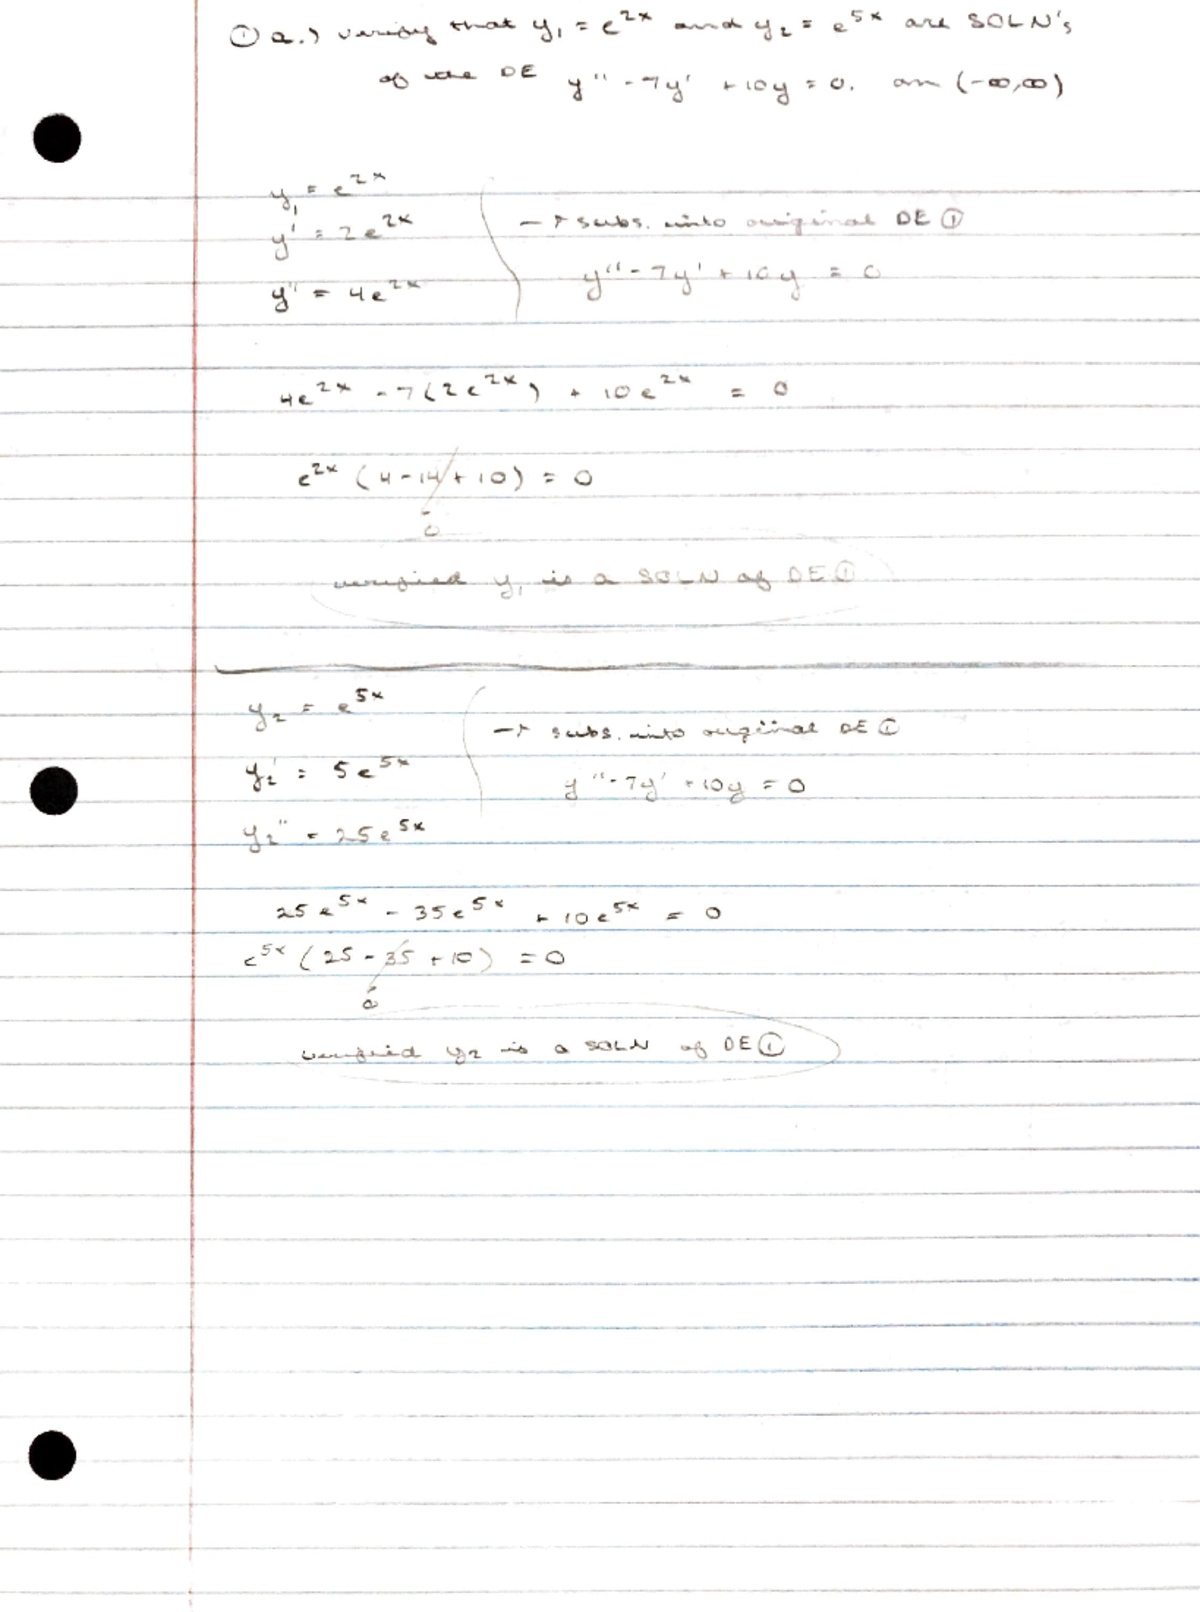 ① a.) verify that y₁ = e^2x and y₂ = e^5x are SOLN's
of the DE y'' - 7y' + 10y = 0. on (-∞,∞)
y₁ = e^2x
y' = 2e^2x → subs. into original DE ①
y'' = 4e^2x y'' - 7y' + 10y = 0
4e^2x - 7(2e^2x) + 10e^2x = 0
e^2x (4 - 14 + 10) = 0
0
verified y₁ is a SOLN of DE ①
y₂ = e^5x → subs. into original DE ①
y₂' = 5e^5x y'' - 7y' + 10y = 0
y₂'' = 25e^5x
25e^5x - 35e^5x + 10e^5x = 0
e^5x (25 - 35 + 10) = 0
0
verified y₂ is a SOLN of DE ①